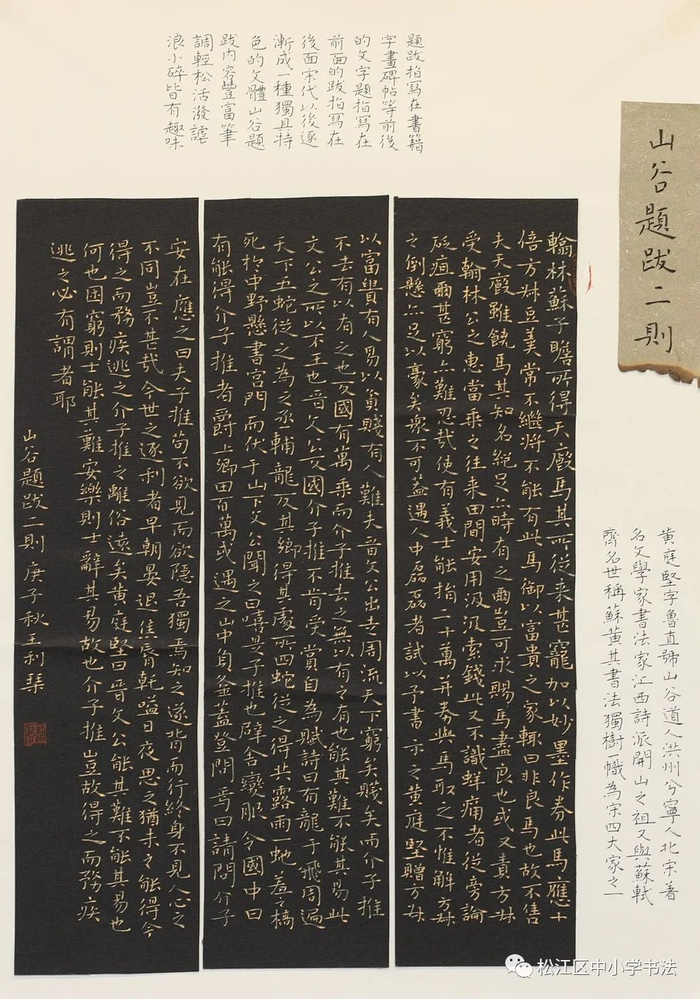 山谷題跋二則
題跋指寫在書籍
字畫碑帖等前後
的文字題指寫在
前面的跋指寫在
後面宋代以後逐
漸成一種獨具特
色的文體山谷題
跋內容豐富筆
調輕松活潑謔
浪小碎皆有趣味
翰林蘇子瞻所得天廄馬其所從來甚寵加以妙墨作券此馬應十
倍方叔豆羹常不繼將不能有此馬御以富貴之家輒曰非良馬也故不售
夫天廄雖饒馬其知名絕足亦時有之爾豈可求賜馬盡良也或又責方叔
受翰林公之惠當乘之往來田間安用汲汲索錢此又識蛘痛者從旁論
砭疽爾甚窮亦難忍哉使有義士能捐二十萬并券與馬取之不惟解方叔
之倒懸亦足以豪矣眾不可蓋遇人中磊磊者試以予書示之黃庭堅贈方叔
以富貴有人易以貧賤有人難夫晉文公出周流天下窮矣賤矣而介子推
不去有以有之也反國有萬乘而介子推去之無以有之也能其難不能其易此
文公之所以不王也晉文公反國介子推不肯受賞自為賦詩曰有龍于飛周遍
天下五蛇從之為之丞輔龍反其鄉得其處所四蛇從之得其露雨一蛇羞之橋
死於中野懸書宮門而伏于山下文公聞之曰嘻是子推也辟舍變服令國中曰
有能得介子推者爵上卿田百萬或遇之山中負釜蓋簦問焉曰請問介子
安在應之曰夫子推苟不欲見而欲隱吾獨焉知之遂背而行終身不見人心之
不同豈不甚哉今世之逐利者早朝晏退焦脣乾嗌日夜思之猶未之能得今
得之而務疾逃之介子推之離俗遠矣黃庭堅曰晉文公能其難不能其易也
何也困窮則士能其難安樂則士辭其易故也介子推豈故得之而務疾
逃之必有謂者耶
山谷題跋二則庚子秋王利琹
黃庭堅字魯直號山谷道人洪州分寧人北宋著
名文學家書法家江西詩派開山之祖又與蘇軾
齊名世稱蘇黃其書法獨樹一幟為宋四大家之一
松江区中小学书法